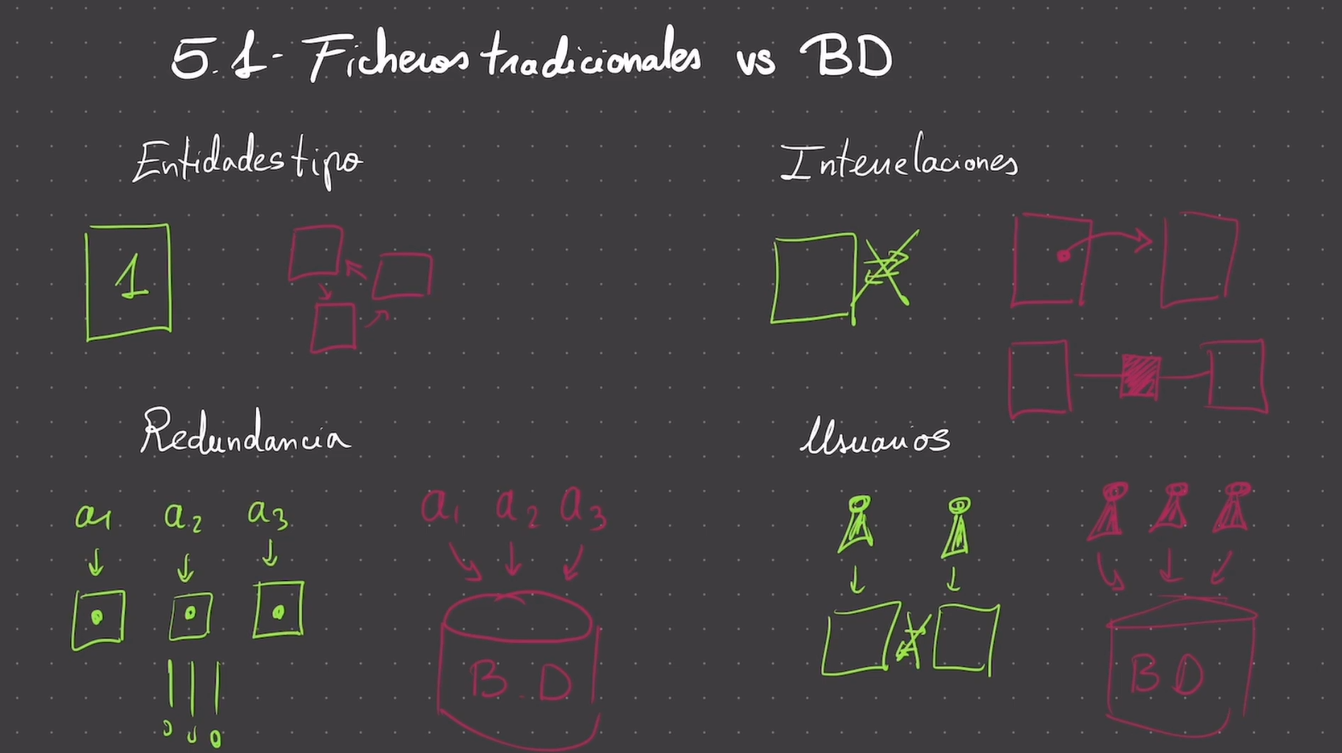 5.1- Ficheros tradicionales vs BD
Entidades tipo
Interrelaciones
1
Redundancia
Usuarios
a1 a2 a3
a1 a2 a3
B.D
BD
!!!